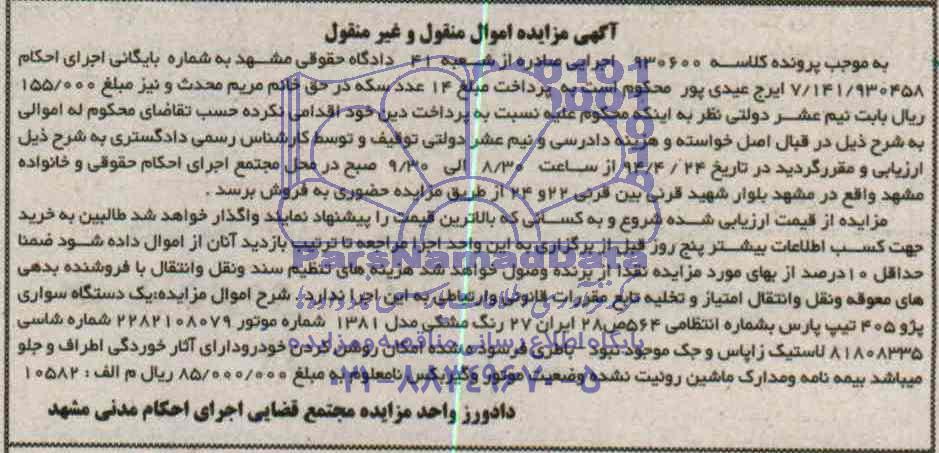 آگهی مزایده اموال منقول و غیر منقول
به موجب پرونده کلاسه ۹۳۰۶۰۰ اجرایی صادره از شعبه ۴۱ دادگاه حقوقی مشهد به شماره بایگانی اجرای احکام
۷/۱۴۱/۹۳۰۴۵۸ ایرج عیدی پور محکوم است به پرداخت مبلغ ۱۴ عدد سکه در حق خانم مریم محدث و نیز مبلغ ۱۵۵/۰۰۰
ریال بابت نیم عشر دولتی نظر به اینکه محکوم علیه نسبت به پرداخت دین خود اقدامی نکرده حسب تقاضای محکوم له اموالی
به شرح ذیل در قبال اصل خواسته و هزینه دادرسی و نیم عشر دولتی توقیف و توسط کارشناس رسمی دادگستری به شرح ذیل
ارزیابی و مقررگردید در تاریخ ۲۴ /۹۴/۴ از ساعت ۸/۳۰ الی ۹/۳۰ صبح در محل مجتمع اجرای احکام حقوقی و خانواده
مشهد واقع در مشهد بلوار شهید قرنی بین قرنی ۲۲و ۲۴ از طریق مزایده حضوری به فروش برسد .
مزایده از قیمت ارزیابی شده شروع و به کسانی که بالاترین قیمت را پیشنهاد نمایند واگذار خواهد شد طالبین به خرید
جهت کسب اطلاعات بیشتر پنج روز قبل از برگزاری به این واحد اجرا مراجعه تا ترتیب بازدید آنان از اموال داده شود ضمنا
حداقل ۱۰درصد از بهای مورد مزایده نقدا از برنده وصول خواهد شد هزینه های تنظیم سند ونقل وانتقال با فروشنده بدهی
های معوقه ونقل وانتقال امتیاز و تخلیه تابع مقررات قانونی وارتباطی به این اجرا ندارد. شرح اموال مزایده:یک دستگاه سواری
پژو ۴۰۵ تیپ پارس بشماره انتظامی ۵۶۴ص۲۸ ایران ۲۷ رنگ مشکی مدل ۱۳۸۱ شماره موتور ۲۲۸۲۱۰۸۰۷۹ شماره شاسی
۸۱۸۰۸۳۳۵ لاستیک زاپاس و جک موجود نبود -باطری فرسوده شده امکان روشن کردن خودرودارای آثار خوردگی اطراف و جلو
میباشد بیمه نامه ومدارک ماشین رویت نشده وضعیت موتور وگیربکس نامعلوم به مبلغ ۸۵/۰۰۰/۰۰۰ ریال م الف : ۱۰۵۸۲
دادورز واحد مزایده مجتمع قضایی اجرای احکام مدنی مشهد
ParsNamadData
پایگاه اطلاع رسانی مناقصه و مزایده
۰۲۱-۸۸۳۴۹۶۷۰-۵